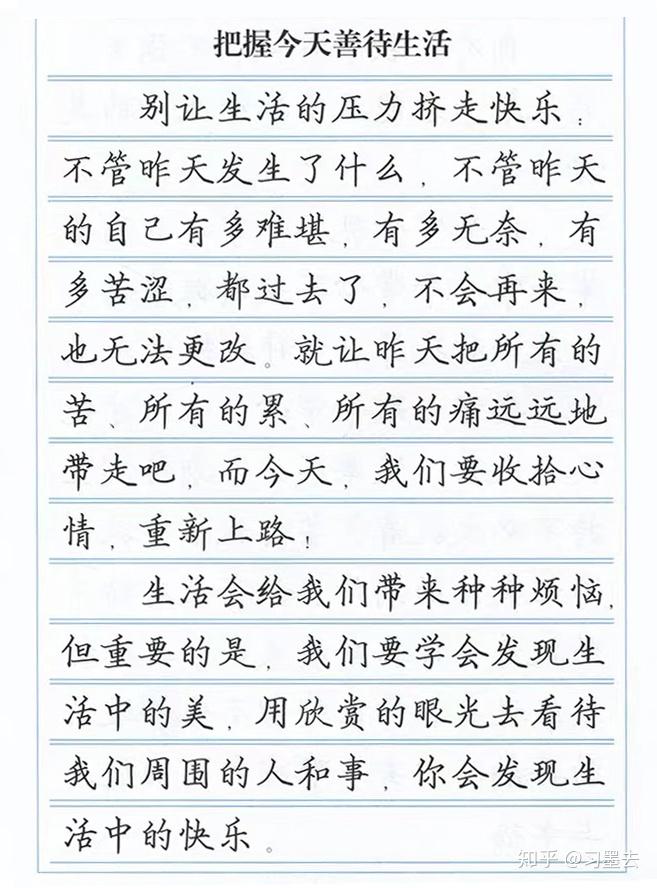 把握今天善待生活
别让生活的压力挤走快乐；
不管昨天发生了什么，不管昨天
的自己有多难堪，有多无奈，有
多苦涩，都过去了，不会再来，
也无法更改。就让昨天把所有的
苦、所有的累、所有的痛远远地
带走吧，而今天，我们要收拾心
情，重新上路！
生活会给我们带来种种烦恼，
但重要的是，我们要学会发现生
活中的美，用欣赏的眼光去看待
我们周围的人和事，你会发现生
活中的快乐。
知乎 @习墨去